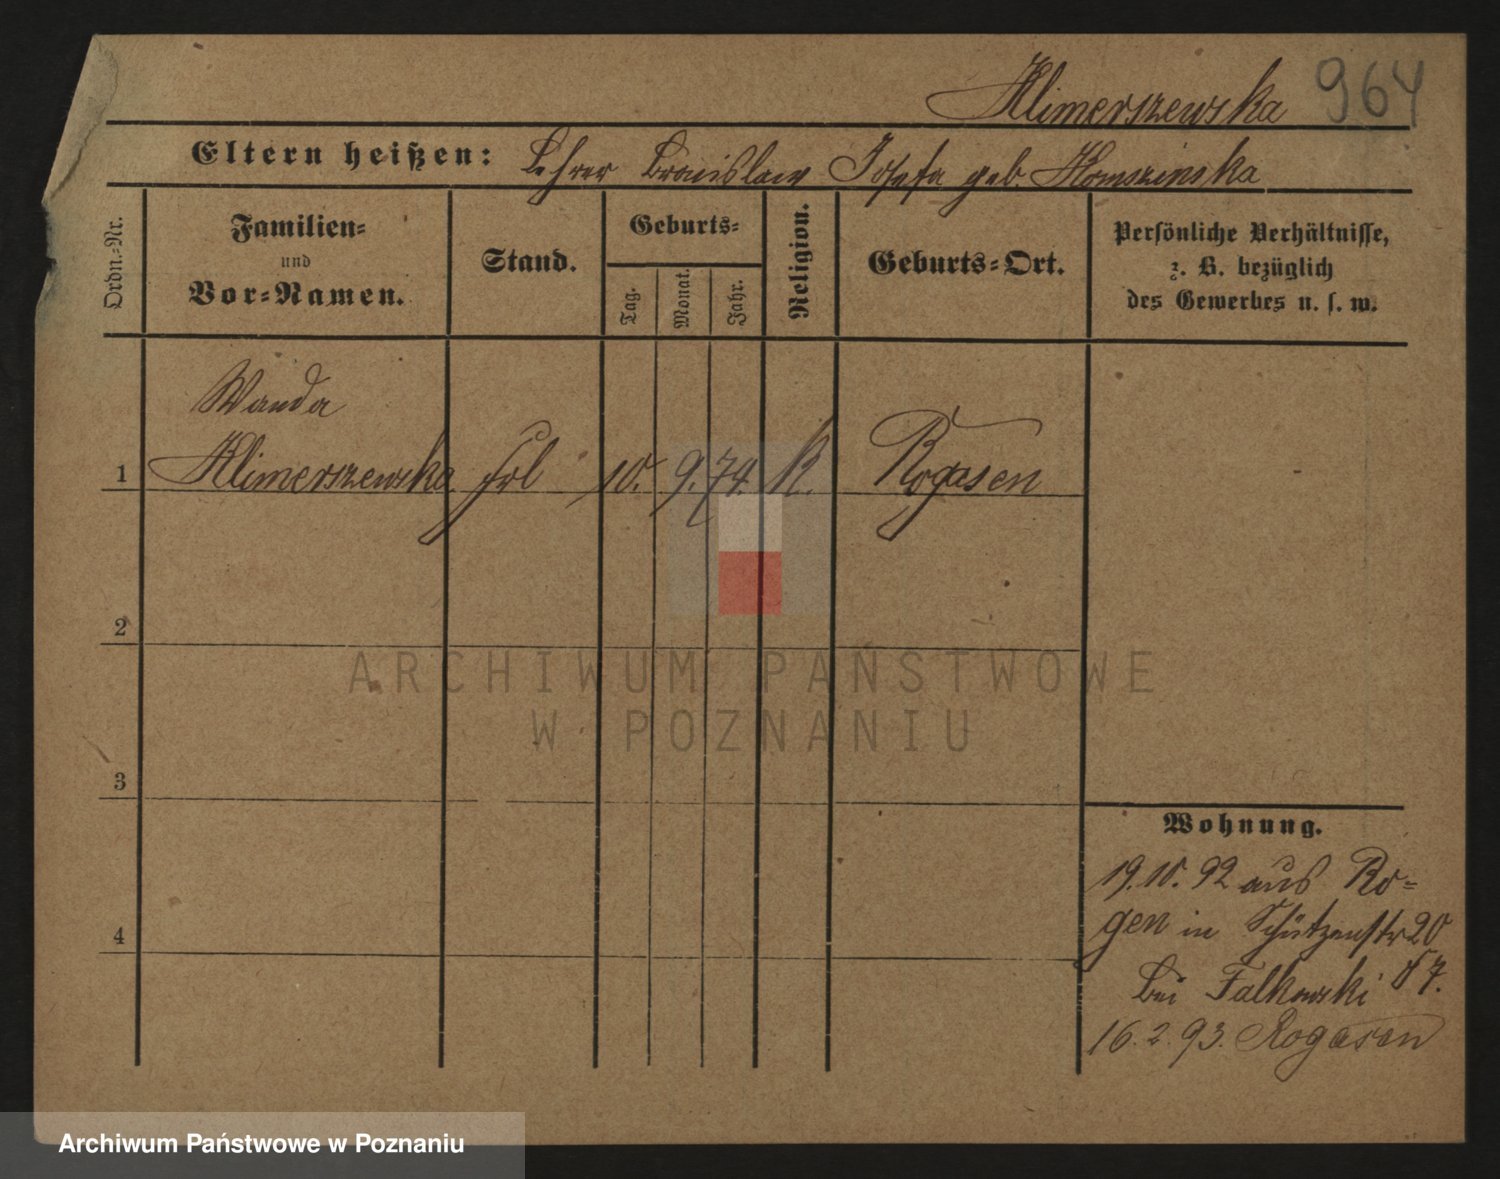 Klimerszewska 964
Eltern heißen: Lehrer Bronislaw Josefa geb.
Ordn.-Nr.
Familien-
und
Vor-Namen.
Stand.
Geburts-
Tag.
Monat.
Jahr.
Religion.
Geburts-Ort.
Persönliche Verhältnisse,
z. B. bezüglich
des Gewerbes u. s. w.
Wanda
1 Klimerszewska frl 10. 9. 74. K. Rogasen
2
ARCHIWUM PAŃSTWOWE
W POZNANIU
3
Wohnung.
19.10.92 aus Ro-
gen in Schützenstr 20
4
bei Falkowski
16.2.93. Rogasen
Archiwum Państwowe w Poznaniu